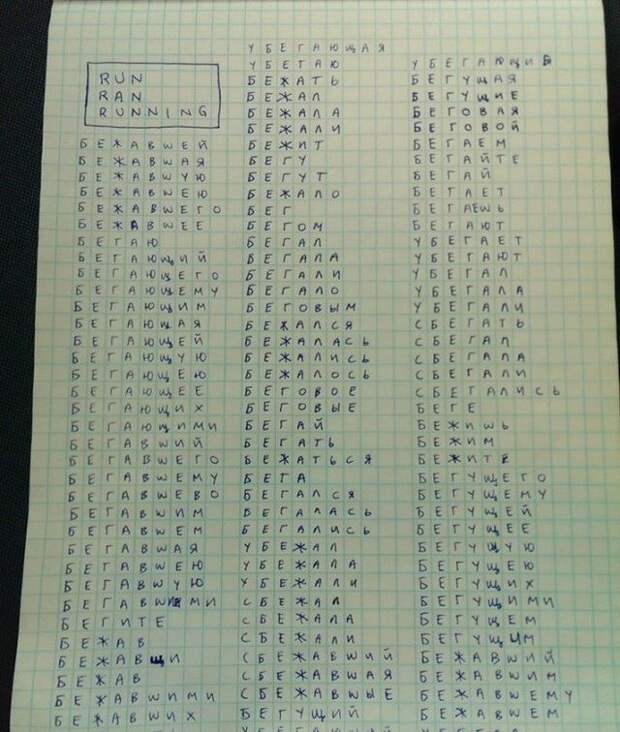 RUN
RAN
RUNNING
БЕЖАВШЕЙ
БЕЖАВШАЯ
БЕЖАВШУЮ
БЕЖАВШЕЮ
БЕЖАВШЕГО
БЕЖАВШЕЕ
БЕГАЮ
БЕГАЮЩИЙ
БЕГАЮЩЕГО
БЕГАЮЩЕМУ
БЕГАЮЩИМ
БЕГАЮЩАЯ
БЕГАЮЩЕЙ
БЕГАЮЩУЮ
БЕГАЮЩЕЮ
БЕГАЮЩЕЕ
БЕГАЮЩИХ
БЕГАЮЩИМИ
БЕГАВШИЙ
БЕГАВШЕГО
БЕГАВШЕМУ
БЕГАВШЕВО
БЕГАВШИМ
БЕГАВШЕМ
БЕГАВШАЯ
БЕГАВШЕЮ
БЕГАВШУЮ
БЕГАВШИМИ
БЕГИТЕ
БЕЖАВ
БЕЖАВЩИ
БЕЖАВ
БЕЖАВШИМИ
БЕЖАВШИХ
УБЕГАЮЩАЯ
УБЕГАЮ
БЕЖАТЬ
БЕЖАЛ
БЕЖАЛА
БЕЖАЛИ
БЕЖИТ
БЕГУ
БЕГУТ
БЕЖАЛО
БЕГ
БЕГОМ
БЕГАЛ
БЕГАЛА
БЕГАЛИ
БЕГАЛО
БЕГОВЫМ
БЕЖАЛСЯ
БЕЖАЛАСЬ
БЕЖАЛИСЬ
БЕЖАЛОСЬ
БЕГОВОЕ
БЕГОВЫЕ
БЕГАЙ
БЕГАТЬ
БЕЖАТЬСЯ
БЕГА
БЕГАЛСЯ
БЕГАЛАСЬ
БЕГАЛИСЬ
УБЕЖАЛ
УБЕЖАЛА
УБЕЖАЛИ
СБЕЖАЛ
СБЕЖАЛА
СБЕЖАЛИ
СБЕЖАВШИЙ
СБЕЖАВШАЯ
СБЕЖАВШЫЕ
БЕГУЩИЙ
УБЕГАЮЩИЕ
БЕГУЩАЯ
БЕГУЩИЕ
БЕГОВАЯ
БЕГОВОЙ
БЕГАЕМ
БЕГАЙТЕ
БЕГАЙ
БЕГАЕТ
БЕГАЕШЬ
БЕГАЮТ
УБЕГАЕТ
УБЕГАЮТ
УБЕГАЛ
УБЕГАЛА
УБЕГАЛИ
СБЕГАТЬ
СБЕГАЛ
СБЕГАЛА
СБЕГАЛИ
СБЕГАЛИСЬ
БЕГЕ
БЕЖИШЬ
БЕЖИМ
БЕЖИТЕ
БЕГУЩЕГО
БЕГУЩЕМУ
БЕГУЩЕЙ
БЕГУЩЕЕ
БЕГУЩУЮ
БЕГУЩЕЮ
БЕГУЩИХ
БЕГУЩИМИ
БЕГУЩЕМ
БЕГУЩИМ
БЕЖАВШИЙ
БЕЖАВШИМ
БЕЖАВШЕМУ
БЕЖАВШЕМ